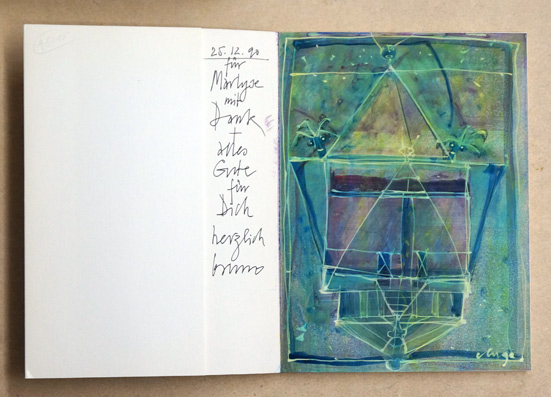 25.12.90
für
Marlyse
mit
Dank
+
alles
Gute
für
Dich
herzlich
bruno